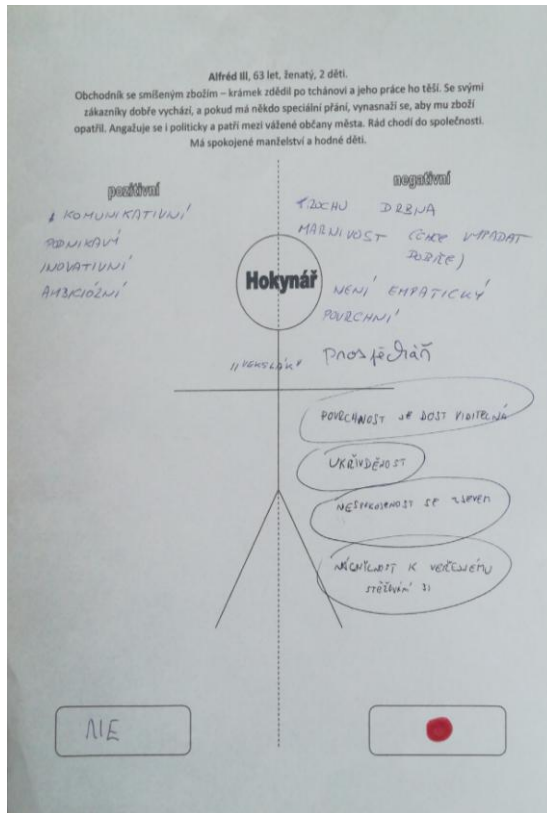 Alfréd Ill, 63 let, ženatý, 2 děti.
Obchodník se smíšeným zbožím – krámek zdědil po tchánovi a jeho práce ho těší. Se svými
zákazníky dobře vychází, a pokud má někdo speciální přání, vynasnaží se, aby mu zboží
opatřil. Angažuje se i politicky a patří mezi vážené občany města. Rád chodí do společnosti.
Má spokojené manželství a hodné děti.
pozitivní
KOMUNIKATIVNÍ
PODNIKAVÝ
INOVATIVNÍ
AMBICIÓZNÍ
negativní
TROCHU DRBNA
MARNIVOST (CHCE VYPADAT
DOBŘE)
Hokynář
NENÍ EMPATICKÝ
POVRCHNÍ
"VEKSLÁK"
prospěchář
POVRCHNOST JE DOST VIDITELNÁ
UKŘIVDĚNOST
NESPOKOJENOST SE
K VEŘEJNÉMU
STĚŽOVÁNÍ SI
NIE